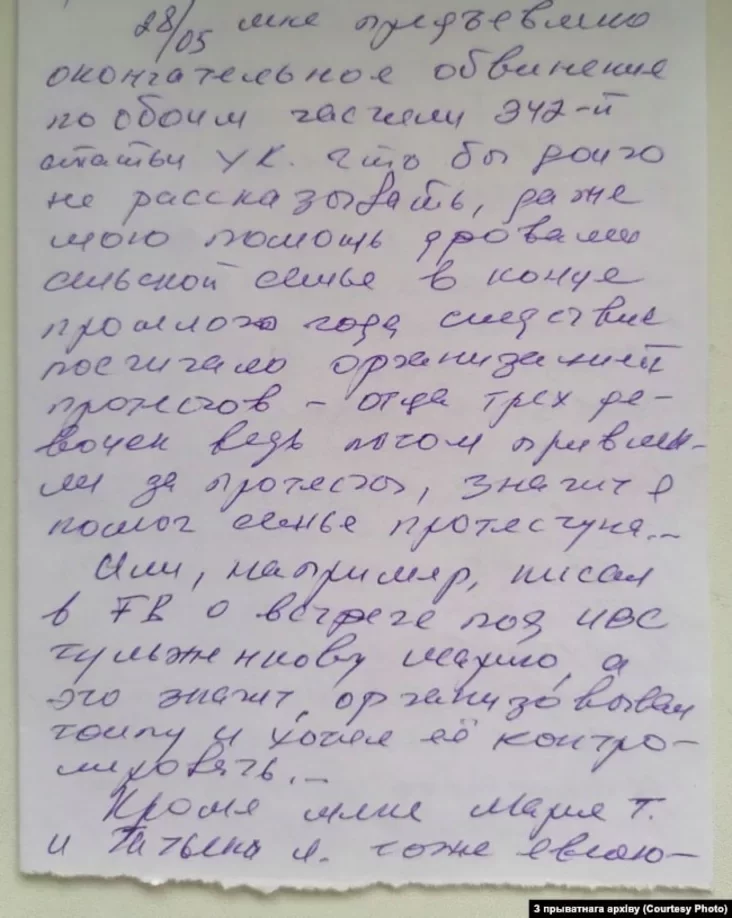 28/05 мне предъявлено
окончательное обвинение
по обоим частям 342-й
статьи УК. Что бы долго
не рассказывать, даже
мою помощь дровами
сельской семье в конце
прошлого года следствие
посчитало организацией
протестов – отца трех де-
вочек ведь потом привлек-
ли за протесты, значит я
помог семье протестуна...
Или, например, писал
в FB о встрече под ИВС
Тульженкову Марию, а
это значит, организовывал
толпу и хотел её контро-
лировать...
Кроме меня Мария Т.
и Татьяна Л. тоже являю-
З прыватнага архіву (Courtesy Photo)